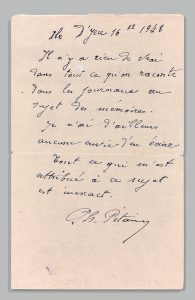 Ile d'Yeu 16 1948
Il n'y a rien de vrai
dans tout ce qu'on raconte
dans les journaux au
sujet des mémoires.
Je n'ai d'ailleurs
aucune envie d'en écrire
Tout ce qui m'est
attribué à ce sujet
est inexact.
Ph. Pétain